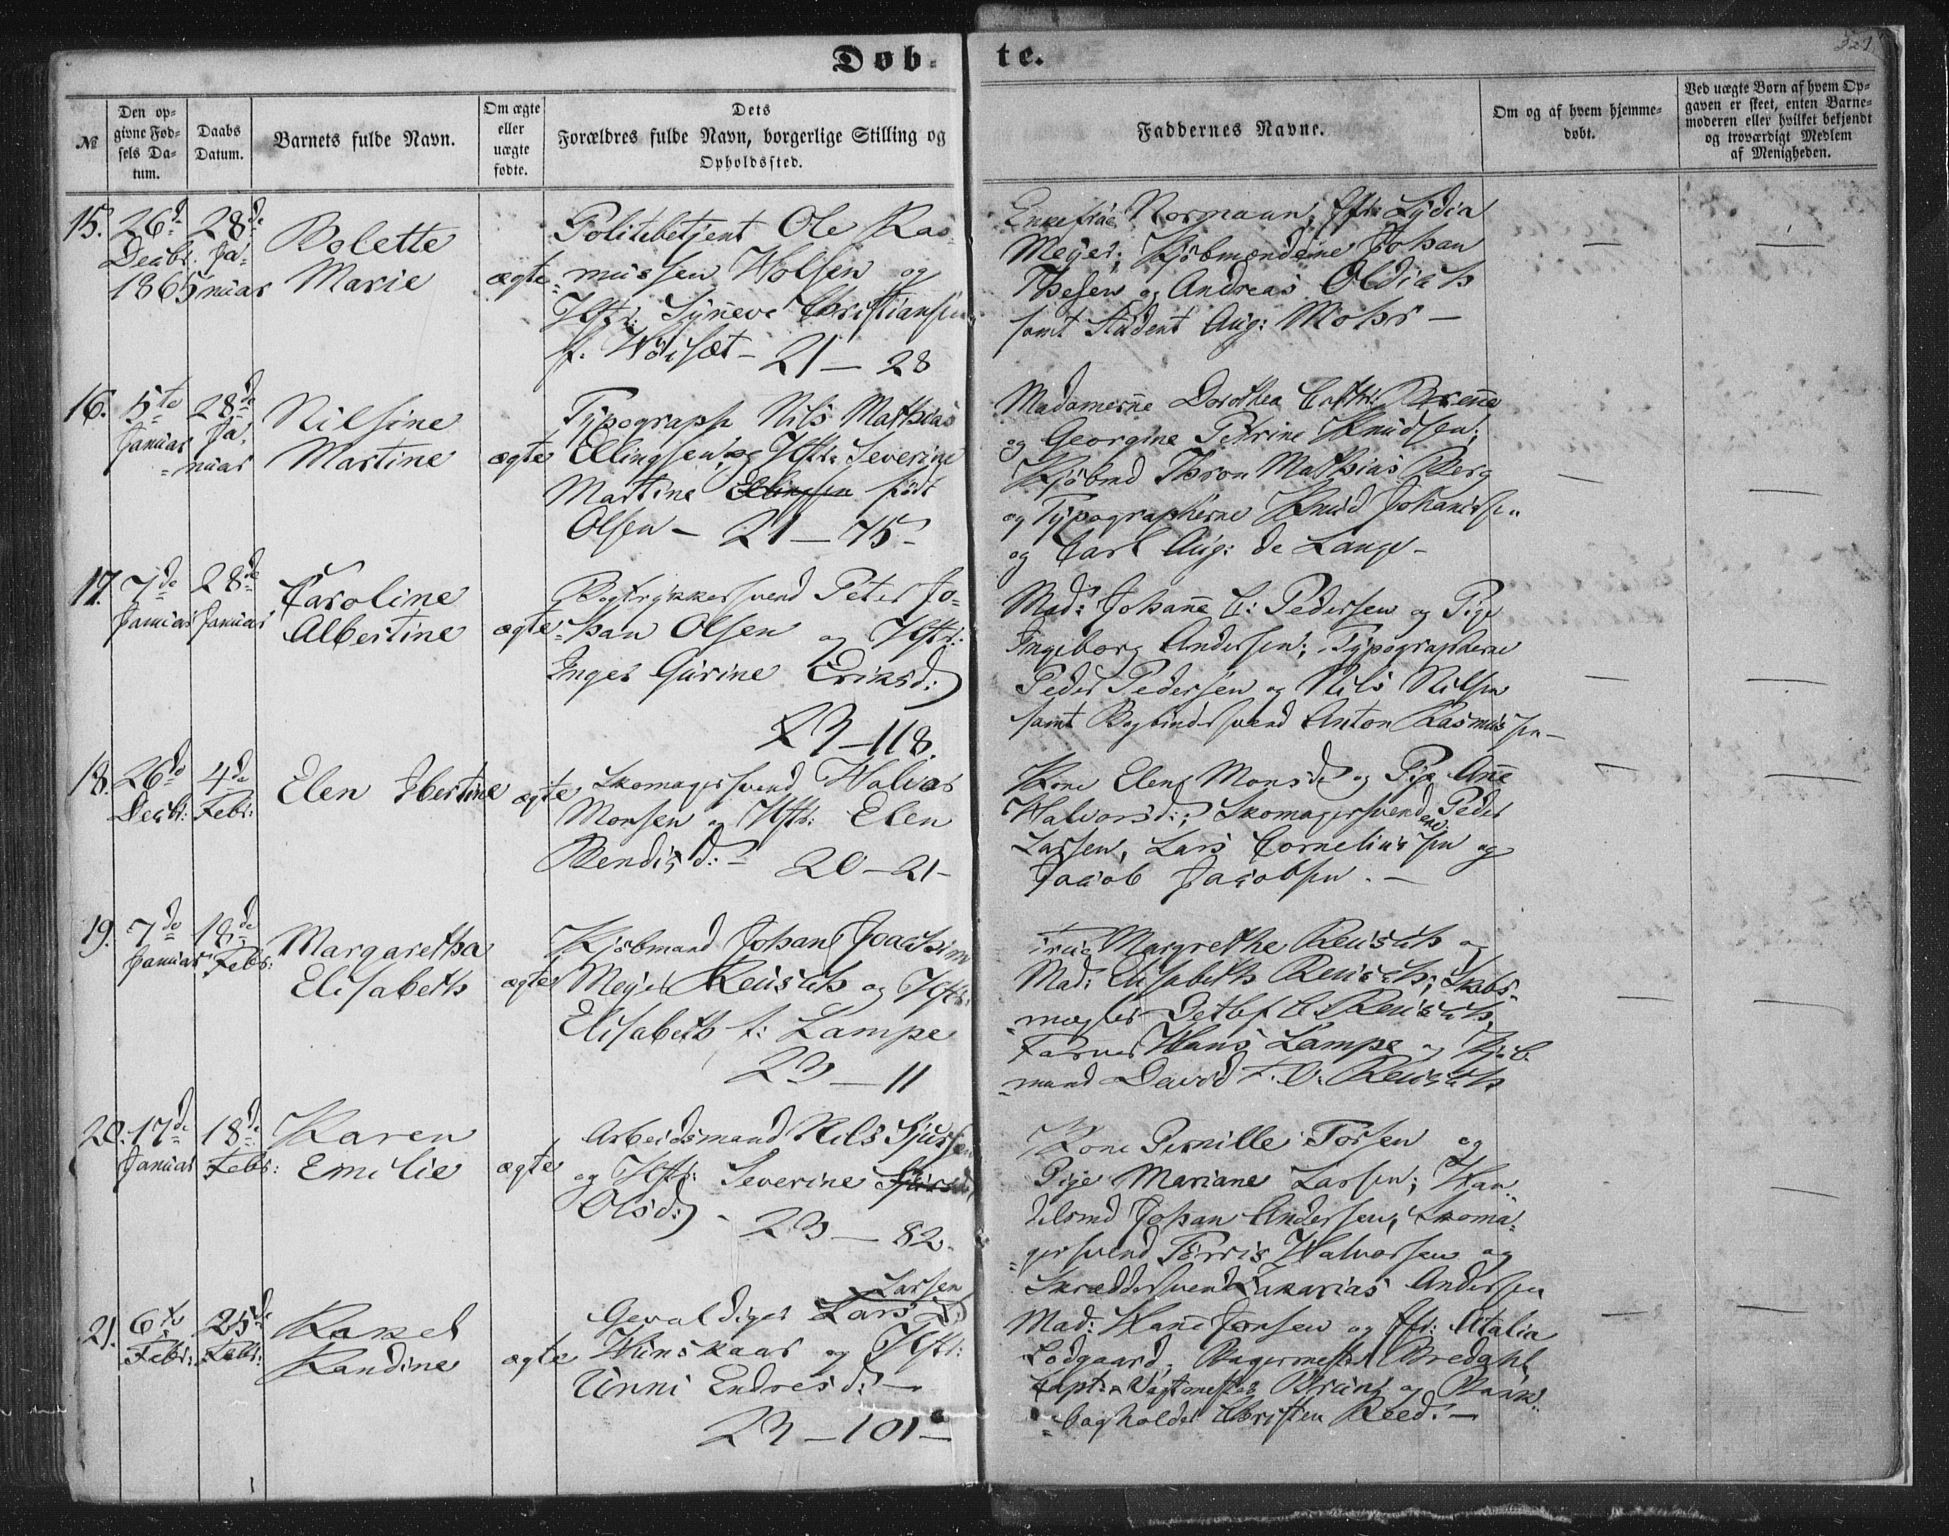 Døb-
te.
№
Den op-
givne Fød-
sels Da-
tum.
Daabs
Datum.
Barnets fulde Navn.
Om ægte
eller
uægte
fødte.
Dets
Forældres fulde Navn, borgerlige Stilling og
Opholdssted.
Faddernes Navne.
Om og af hvem hjemme-
døbt.
Ved uægte Børn af hvem Op-
gaven er skeet, enten Barne-
moderen eller hvilket bekjendt
og troværdigt Medlem
af Menigheden.
15.
26de
Decbr.
1865
28de
Ja-
nuar
Bolette
Marie
ægte
Politibetjent Ole Ras-
mussen Wolsen og
Hstr: Syneve Christiansen
f. Wöisæt - 21 - 28
Enkefrue Normann, Lydia
Meyer; Kjöbmændene Johan
Thesen og Andreas
samt Student Aug: Mohr -
16.
5te
Januar
28de
Ja-
nuar
Nilsine
Martine
ægte
Typograph Nils Mathias
Ellingsen og Hstr: Severine
Martine Ellingsen född
Olsen - 21 - 75
Madamerne Dorothea Cathr:
og Georgine Petrine Knudsen;
Kjöbmd Thron Mathias Berg
og Typographerne Knud Johannessen
og Carl Aug: de Lange -
17.
7de
Januar
28de
Januar
Caroline
Albertine
ægte
Bogtrykkersvend Peter Jo-
han Olsen og Hstr:
Inger Gurine Eriksd:
23 - 118.
Mad: Johanne C: Pedersen og Pige
Ingeborg Andersen; Typographerne
Peder Pedersen og Nils Nilsen
samt Bogbindersvend Anton Rasmussen -
18.
26de
Decbr:
4de
Febr:
Elen Ibertine
ægte
Skomagersvend Halvor
Monsen og Hstr: Elen
Bendixd: - 20 - 21 -
Kone Elen Monsd og Pige Anne
Halvorsd:; Skomagersvendene Peder
Larsen, Lars Corneliussen og
Jacob Jacobsen. -
19.
7de
Januar
18de
Febr:
Margaretha
Elisabeth
ægte
Kjöbmand Johan Joachim
Meyer Reusch og Hstr:
Elisabeth f: Lampe
23 - 11
Frue Margrethe Reusch og
Mad: Elisabeth Reusch; Skibs-
mægler Detlef C: Reusch,
Farver Hans Lampe og Kjöb-
mand David F: C: Reusch
20.
17de
Januar
18de
Febr:
Karen
Emilie
ægte
Arbeidsmand Nils Sjursen
og Hstr: Severine Sjursd
Olsd: - 23 - 82.
Kone Pernille Torsen og
Pige Mariane Larsen; Han-
delsmd Johan Andersen, Skoma-
gersvend Torris Halvorsen og
Skræddersvend Zakarias Andersen
21.
6te
Febr:
25de
Febr:
Rakel
Randine
ægte
Larsen
Gevaldiger Lars
Hunskaar og Hstr:
Unni Endresd: -
23 - 101 -
Mad: Hanne Jonsen og Jfr: Atalia
Lodgaard; Bagermester Bredahl
Vagtmester Bruns og Bank-
bogholder Christen Reed. -